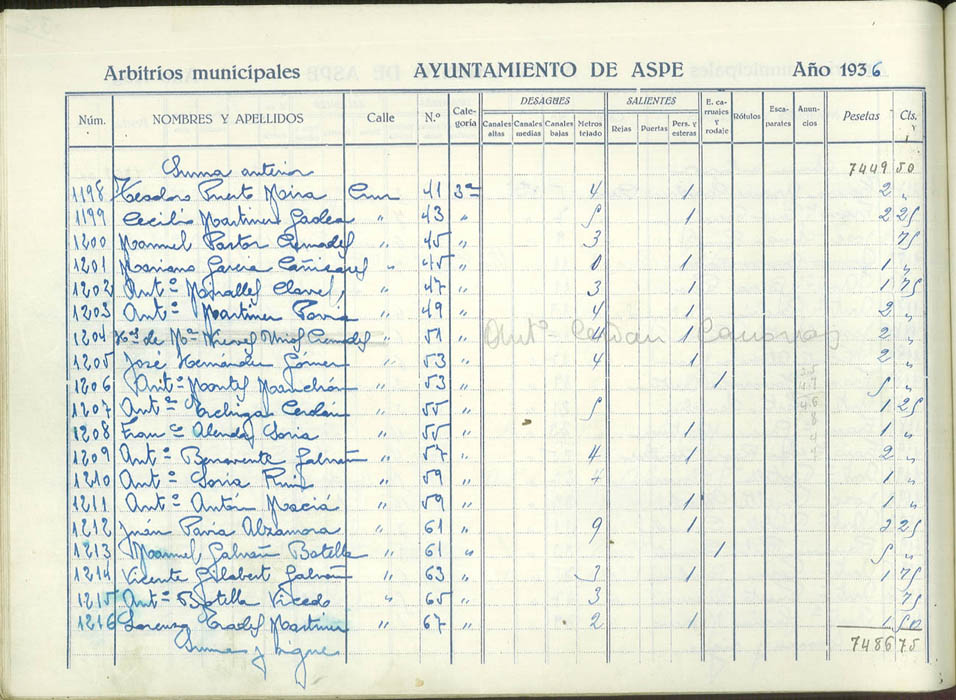 Arbitrios municipales AYUNTAMIENTO DE ASPE Año 1936
Núm. NOMBRES Y APELLIDOS Calle N.º Cate-goría DESAGUES Canales altas Canales medias Canales bajas Metros tejado SALIENTES Rejas Puertas Pers. y esteras E. ca-rruajes y rodaje Rótulos Esca-parates Anun-cios Pesetas Cts.
Suma anterior 7449 50
1198 Teodoro Puerto Mira 41 3ª 4 1 2 "
1199 Cecilio Martinez Galea " 43 " 5 1 2 25
1200 Manuel Pastor Cremades " 45 " 3 75
1201 Mariano Garcia Cañizares " 45 " 0 1 1 "
1202 Antº Miralles Claver " 47 " 3 1 1 75
1203 Antº Martinez Pavia " 49 " 4 1 2 "
1204 Hos de Mª Nieves Cremades " 51 " 4 1 2 "
Antº Cerdán Canovas
1205 José Hernández Gómez " 53 " 4 1 2 "
1206 Antº Montes Manchón " 53 " 1 5 "
1207 Antª Cerdán " 55 " 5 1 25
1208 Franco Alenda Soria " 55 " 1 1 "
1209 Antº Benavente Galván " 57 " 4 1 2 "
1210 Antº Soria Ruiz " 59 " 4 1 "
1211 Antº Antón Maciá " 59 " 1 1 "
1212 Juán Pavia Alzamora " 61 " 9 1 2 25
1213 Manuel Galván Botella " 61 " 1 5 "
1214 Vicente Gilabert Galván " 63 " 3 1 1 75
1215 Antº Botella Vicedo " 65 " 3 75
1216 Lorenzo Prades Martinez " 67 " 2 1 1 50
Suma y sigue 7486 75